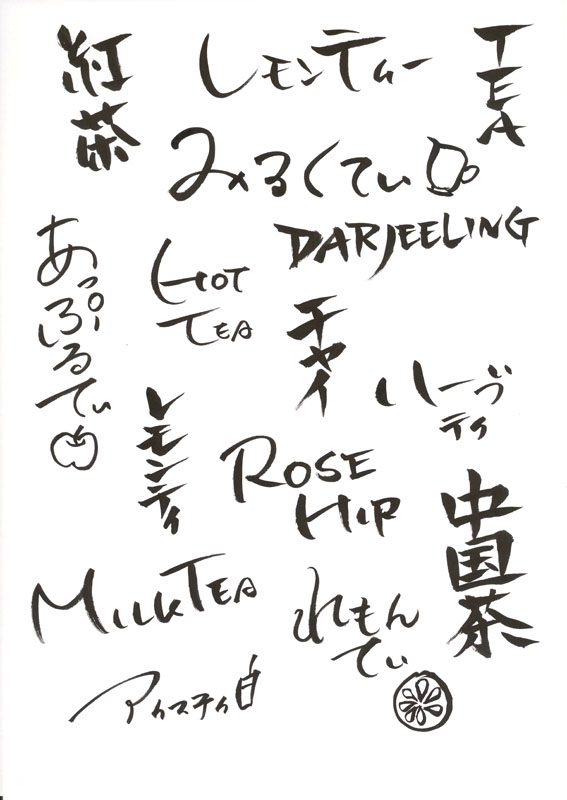 紅茶
レモンティー
TEA
みるくてぃ
DARJEELING
あっぷるてぃ
HOT
TEA
チャイ
ハーブ
ティ
レモンティ
ROSE
HIP
中国茶
MILK TEA
れもん
てぃ
アイスティ